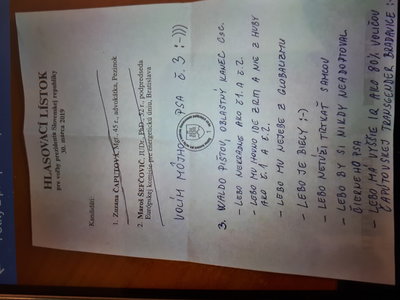 HLASOVACÍ LÍSTOK
pre voľby prezidenta Slovenskej republiky
30. marca 2019
Kandidáti:
1. Zuzana ČAPUTOVÁ, Mgr., 45 r., advokátka, Pezinok
2. Maroš ŠEFČOVIČ, JUDr., PhD., 52 r., podpredseda
Európskej komisie pre energetickú úniu, Bratislava
VOLÍM MÔJHO PSA Č. 3 :-)))
3. WALDO PIŠTOV, OBLASTNÝ KANEC ÚSC.
- LEBO NEKRADNE AKO Č.1 A Č.2
- LEBO MU HOVNO IDE Z RITI A NIE Z HUBY
AKO Č.1 A Č.2.
- LEBO MU NEJEBE Z GLOBALIZMU
- LEBO JE BIELY :-)
- LEBO NETÚŽI TRTKAŤ SAMCOV
- LEBO BY SI NIKDY NEADOPTOVAL
ČIERNEHO PSA
- LEBO MÁ VYŠŠIE IQ AKO 80% VOLIČOV
ČAPUTOVSKEJ TRANSGENDER BRADAVICE :-